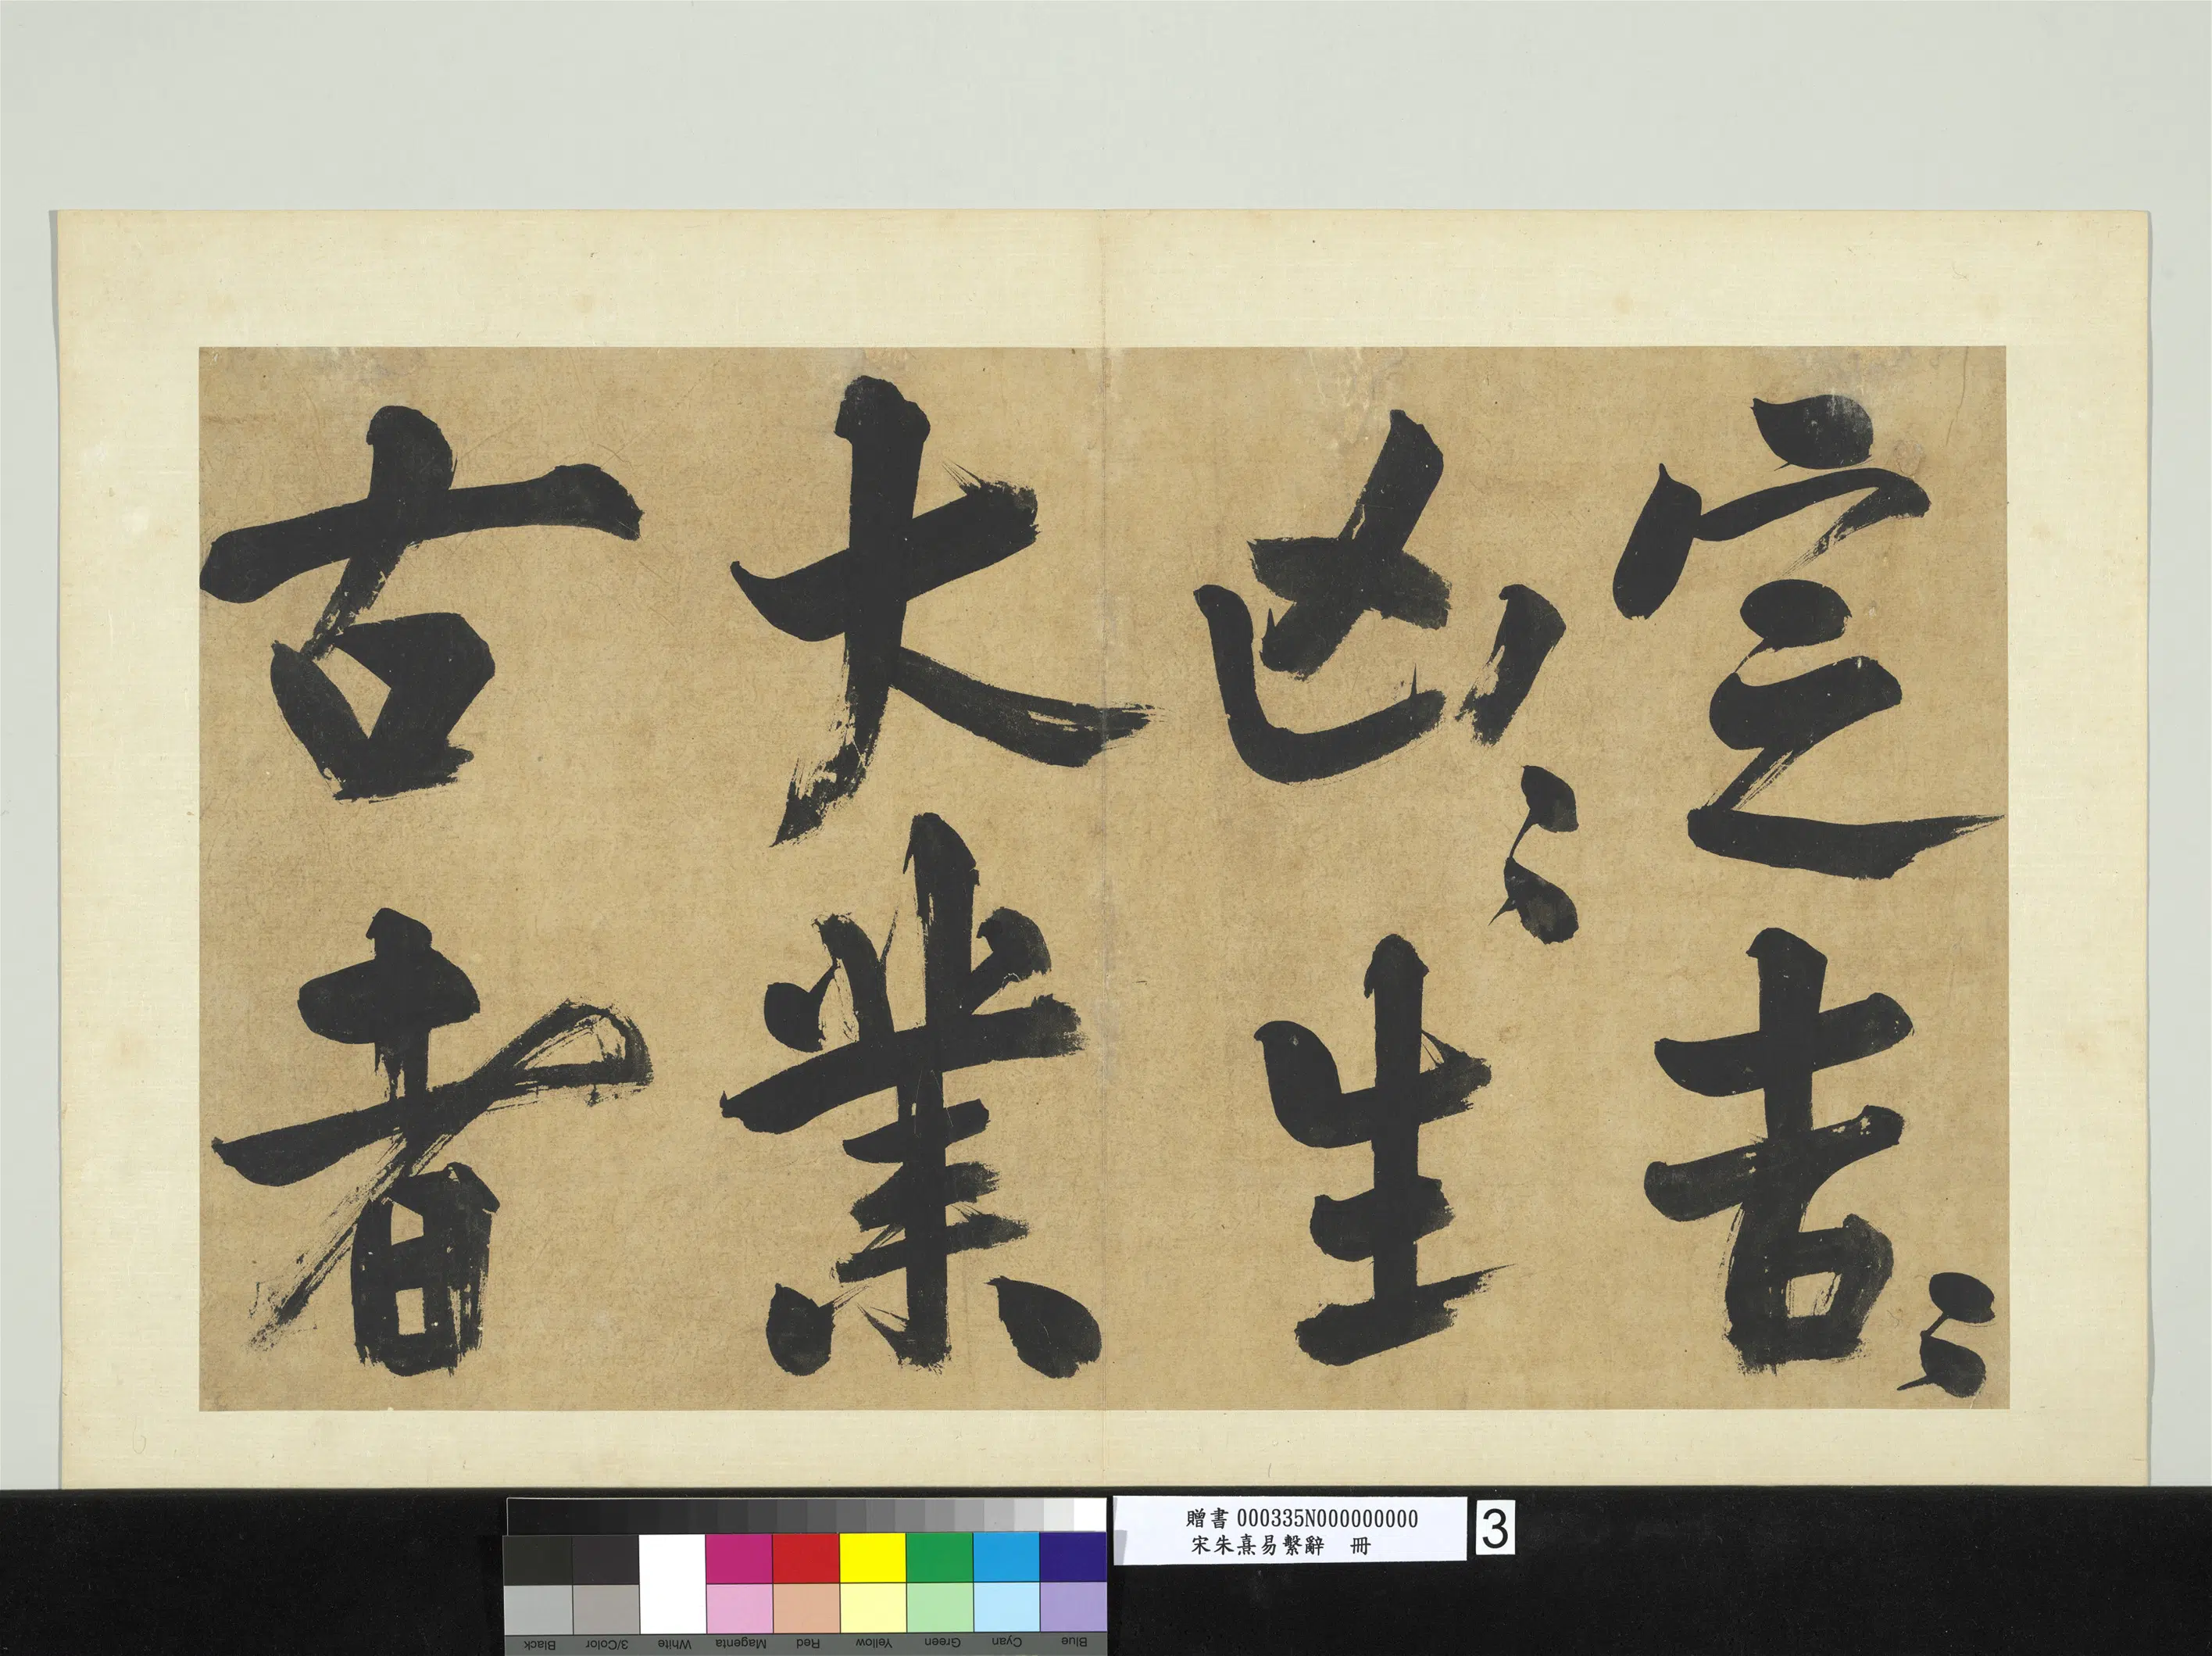 定吉〻
凶〻生
大業
古者
贈書 000335N000000000
宋朱熹易繫辭 冊
3
Black
3/Color
White
Magenta
Red
Yellow
Green
Cyan
Blue